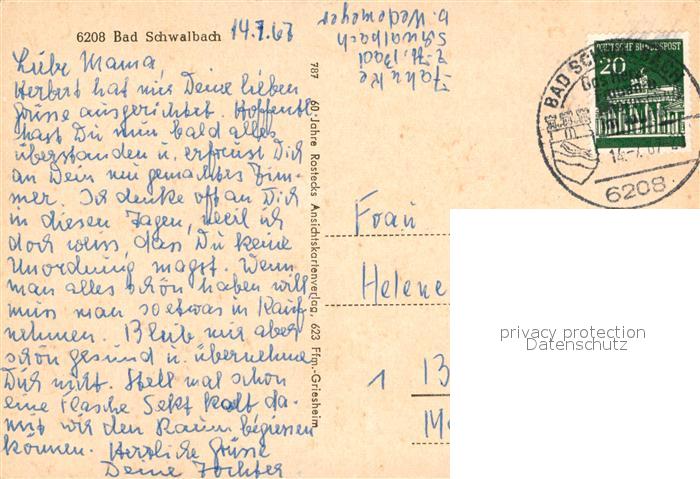 6208 Bad Schwalbach 14.7.67
Liebe Mama
Herbert hat mir Deine lieben
Grüsse ausgerichtet. Hoffentl.
hast Du nun bald alles
überstanden u. erfreust Dich
an Dein neu gemachtes Zim-
mer. Ich denke oft an Dich
in diesen Tagen, weil ich
doch weiss, dass Du keine
Unordnung magst. Wenn
man alles schön haben will
muss man so etwas in Kauf
nehmen. Bleib mir aber
schön gesund u. übernehme
Dich nicht. Stell mal schon
eine Flasche Sekt kalt da-
mit wir den Raum begiessen
können. Herzliche Grüsse
Deine Tochter
787 60 Jahre Rostecks Ansichtskartenverlag, 623 Ffm.-Griesheim
Jahnke
z. Zt. Bad
Schwalbach
b. Wedemeyer
DEUTSCHE BUNDESPOST
20
BAD SCHWALBACH
14.-7.67
6208
Frau
Helene
1 B
M
privacy protection
Datenschutz